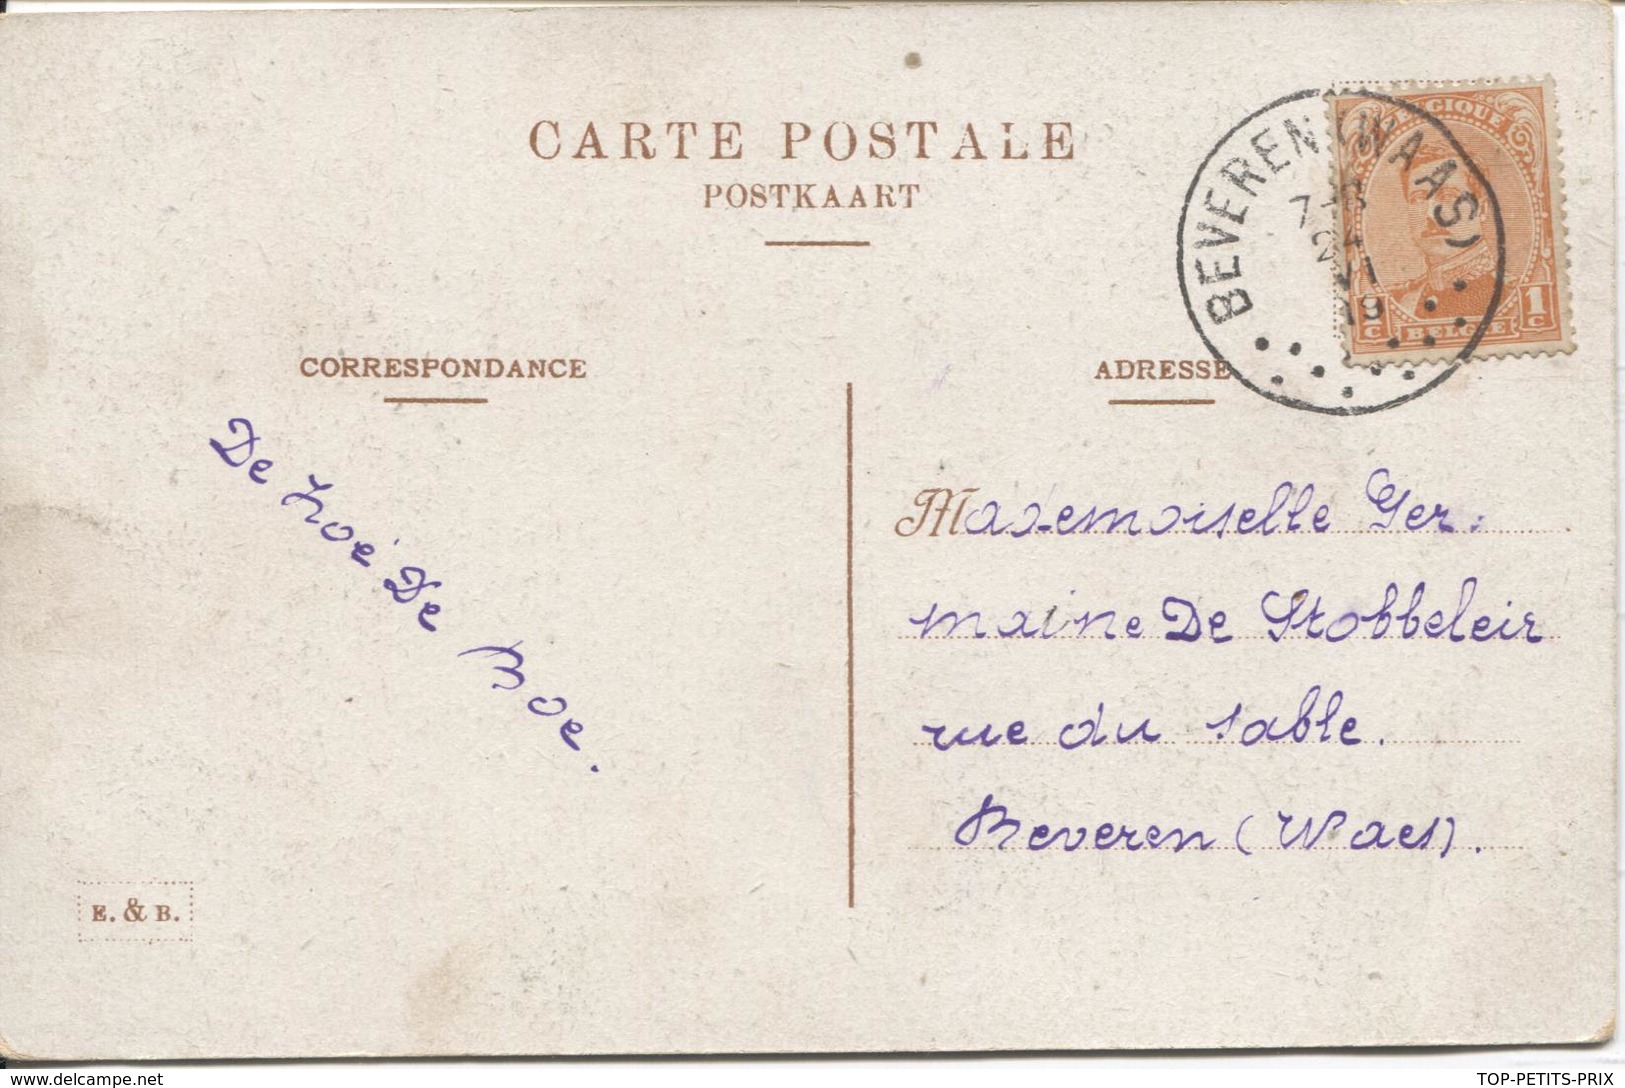 CARTE POSTALE
POSTKAART
BEVEREN (WAAS)
24
VI
19
BELGIQUE
1 C
BELGIE
1 C
CORRESPONDANCE
ADRESSE
De Zoé De Boe.
Mademoiselle Ger:
maine De Stobbeleir
rue du sable.
Beveren (Waes).
E. & B.
www.delcampe.net
TOP-PETITS-PRIX